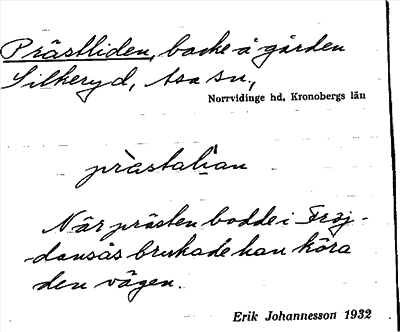 Prästliden, backe å gården
Silkeryd, Asa sn,
Norrvidinge hd, Kronobergs län
När prästen bodde i Fröj-
dansås brukade han köra
den vägen.
Erik Johannesson 1932